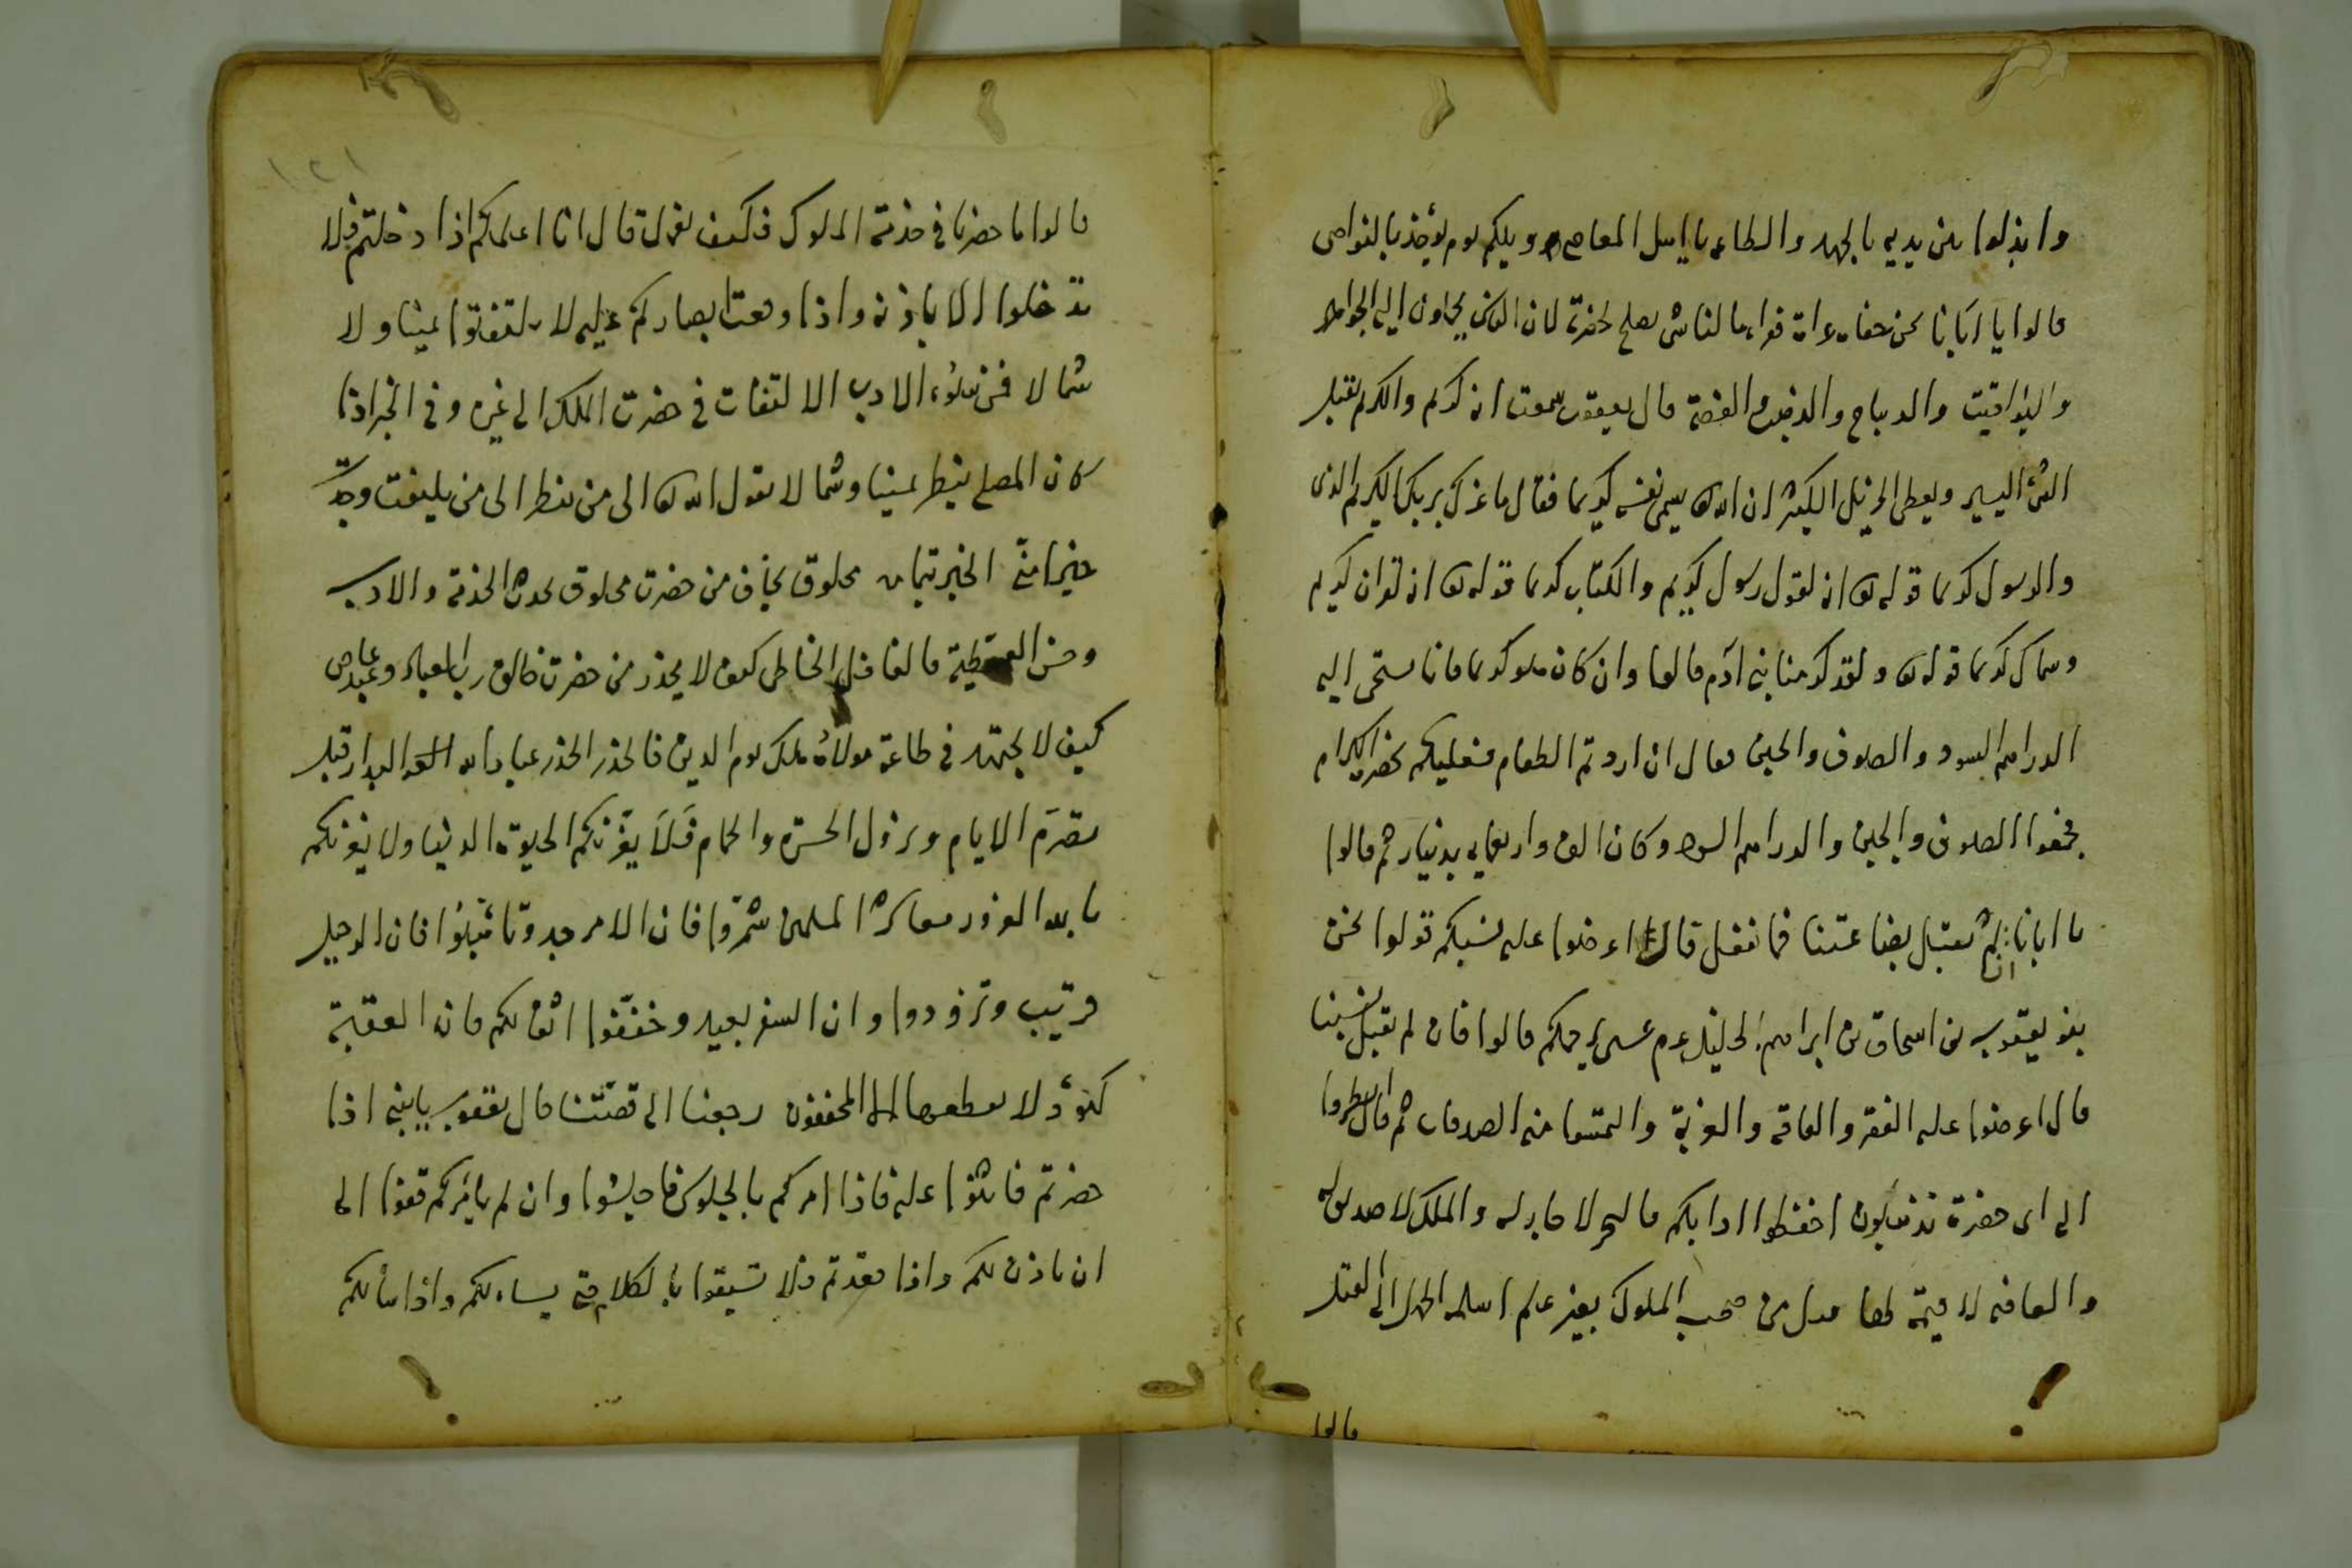 وابذلوا بين يديه بالجهد والطاعه يا اهل المعاصى ويلكم يوم يؤخذ بالنواصى
قالوا يا ابانا نحن حفاه عراة فقراء ما لنا شى يصلح لحضرته لان الناس يحملون اليه الجواهر
واليواقيت والديباج والذهب والفضة قال يعقوب سمعت انه كريم والكريم يقبل
الشئ اليسير ويعطى الجزيل الكثير ان الله تعالى سمى نفسه كريما فقال ما غرك بربك الكريم الذى
والرسول كريما قوله تعالى انه لقول رسول كريم والكتاب كريما قوله تعالى انه لقرآن كريم
وسماك كريما قوله تعالى ولقد كرمنا بنى آدم قالوا وان كان ملكا كريما فانا نستحى اليه
الدراهم السود والصوف والجبن فقال ان اردتم الطعام فعليكم بحضرة الكرام
فجمعوا الصوف والجبن والدراهم السود وكان الف واربعمايه بدنيار ثم قالوا
يا ابانا ان لم يقبل بضاعتنا فما نفعل قال اعرضوا عليه نسبكم قولوا نحن
بنو يعقوب بن اسحاق بن ابراهيم الخليل عم عسى يرحمكم قالوا فان لم يقبل نسبنا
قال اعرضوا عليه الفقر والفاقه والغربة والتمسوا منه الصدقات ثم قال انظروا
الى اى حضرة تذهبون احفظوا ادابكم فالبحر لا جار له والملك لا صديق له
والعافيه لا قيمة لها فمن صحب الملوك بغير علم اسلمه الجهل الى القتل
قالوا
قالوا ما حضرنا فى خدمة الملوك فكيف نفعل قال انا اعلمكم اذا دخلتم فلا
تدخلوا الا باذنه واذا وقعت ابصاركم عليه لا تلتفتوا يمينا ولا
شمالا فمن سوء الادب الالتفات فى حضرت الملك الى غيره وفى الخبر اذا
كان المصلى ينظر يمينا وشمالا يقول الله تعالى الى من تنظر الى من يلتفت وجد
خيرا منى الخبر بتمامه مخلوق يخاف من حضرت مخلوق بحسن الخدمة والادب
وحسن العطية فالغافل الخاطى كيف لا يحذر من حضرت خالق رب العباد وعبد عاص
كيف لا يجتهد فى طاعة مولاه ملك يوم الدين فالحذر الحذر عباد الله البدار قبل
تصرم الايام ونزول الحسرة والحمام فلا يغرنكم الحيوة الدنيا ولا يغرنكم
بالله الغرور معاشر المسلمين شمروا فان الامر جد وتاهبوا فان الرحيل
قريب وتزودوا وان السفر بعيد وخففوا اثقالكم فانه العقبة
كئود لا يقطعها الا المخففون رجعنا الى قصتنا قال يعقوب يا بنى اذا
حضرتم فاثنوا عليه فاذا امركم بالجلوس فاجلسوا وان لم يأمركم قفوا الى
ان ياذن لكم واذا قعدتم فلا تسبقوا بالكلام حتى يسالكم واذا سألكم